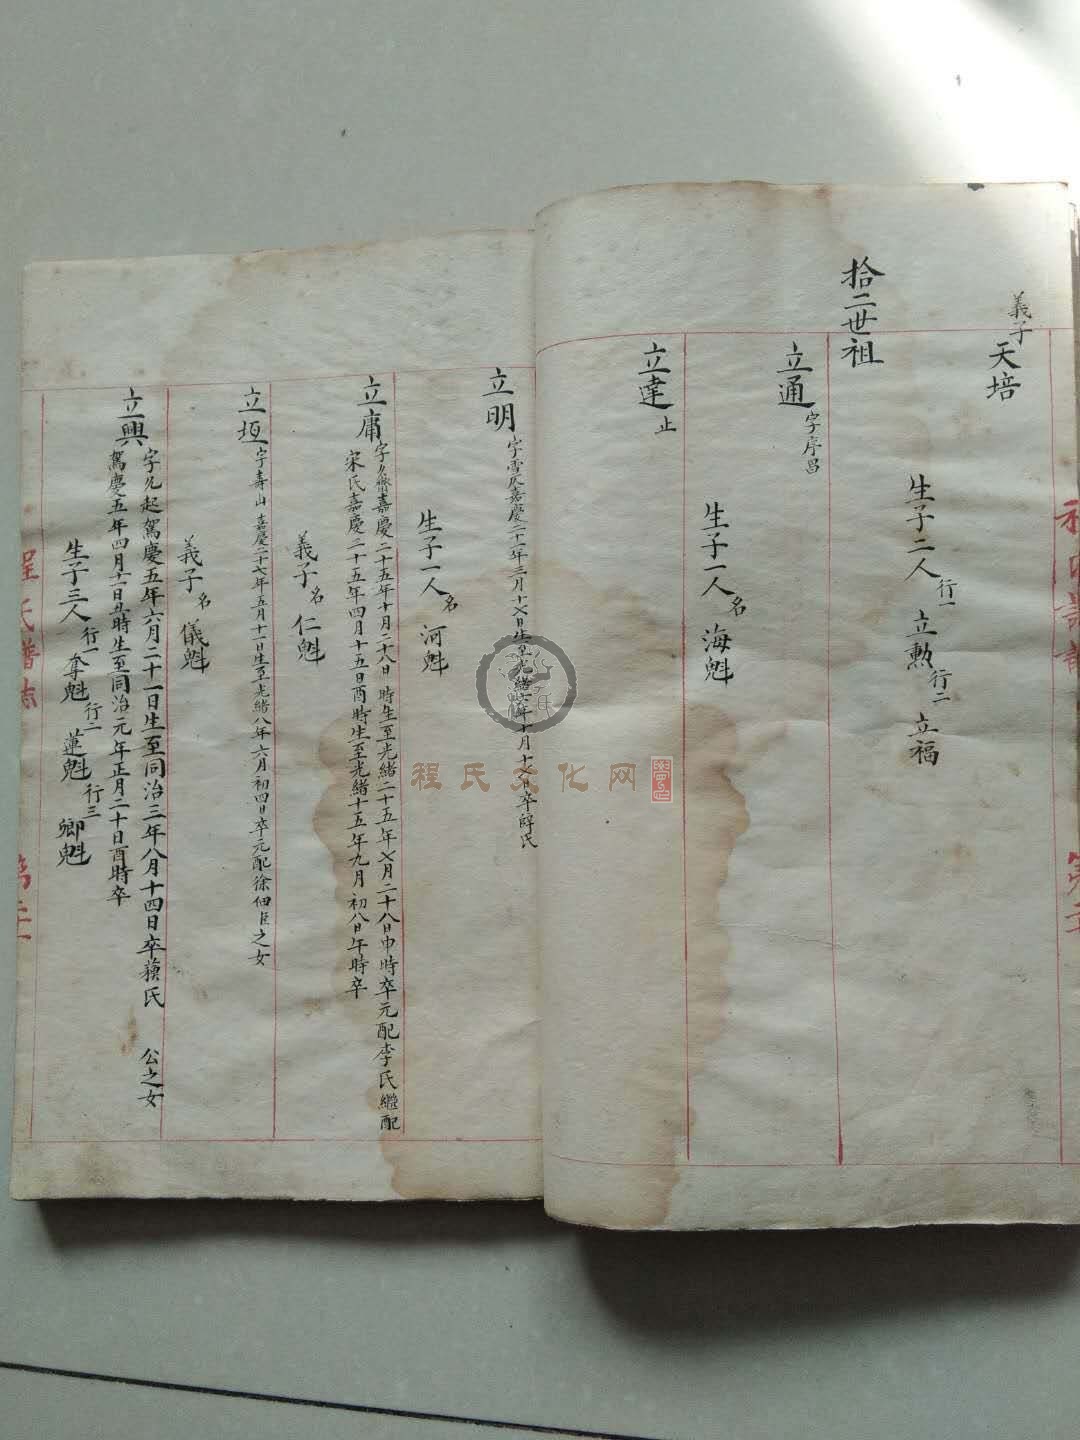 義子
天培
生子二人 行一 立勲 行二 立福
拾二世祖
立通 字序昌
生子一人 名 海魁
立達 止
立明 字雪
嘉慶二十
生子一人 名 河魁
立庸 字久齋嘉慶二十五年十月二十八日 時生至光緒二十五年七月二十八日申時卒元配李氏繼配
宋氏嘉慶二十五年四月十五日酉時生至光緒十五年九月初八日午時卒
義子 名 仁魁
立垣 字壽山 嘉慶二十七年五月十一日生至光緒八年六月初四日卒元配徐佃臣之女
義子 名 儀魁
立興 字允起駕慶五年六月二十一日生至同治三年八月十四日卒
氏 公之女
駕慶五年四月十一日丑時生至同治元年正月二十日酉時卒
生子三人 行一 奪魁 行二 蓮魁 行三 卿魁
程氏譜志
程氏文化网